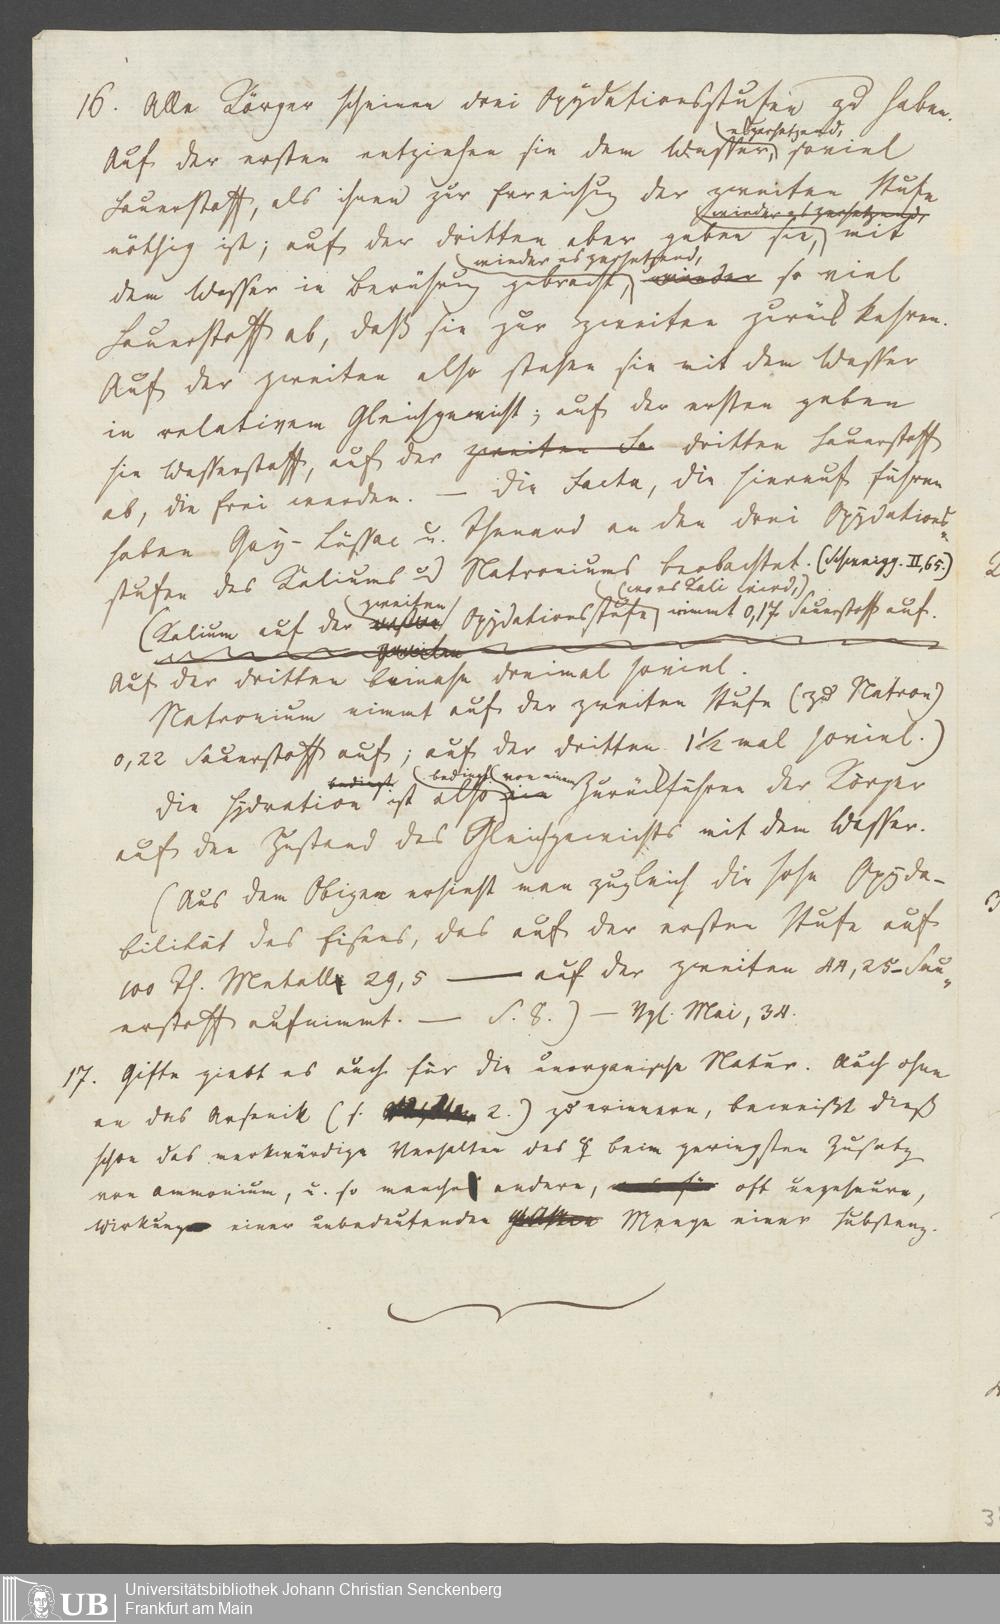 16. Alle Körper scheinen drei Oxydationsstufen zu haben.
Auf der ersten entziehen sie dem Wasser, es zersetzend, soviel
Sauerstoff, als ihnen zur Erreichung der zweiten Stufe
wieder es zersetzend,
nöthig ist; auf der dritten aber geben sie, mit
wieder es zersetzend,
dem Wasser in Berührung gebracht, wieder so viel
Sauerstoff ab, daß sie zur zweiten zurück kehren.
Auf der zweiten also stehen sie mit dem Wasser
in relativem Gleichgewicht; auf der ersten geben
sie Wasserstoff, auf der zweiten Sa dritten Sauerstoff
ab, die frei werden. — Die Facta, die hierauf führen
haben Gay-Lüssac u. Thenard an den drei Oxydations-
stufen des Kaliums u. Natroniums beobachtet. (Schweigg. II, 65.)
zweiten (wo es Kali wird,)
(Kalium auf der ersten Oxydationsstufe nimmt 0,17 Sauerstoff auf.
zweiten
Auf der dritten beinahe dreimal soviel.
Natronium nimmt auf der zweiten Stufe (zu Natron)
0,22 Sauerstoff auf; auf der dritten 1½ mal soviel.)
bedingt bedingt von einem
Die Hydration ist also ein Zurückführen der Körper
auf den Zustand des Gleichgewichts mit dem Wasser.
(Aus dem Obigen ersieht man zugleich die hohe Oxyda-
bilität des Eisens, das auf der ersten Stufe auf
100 Th. Metall 29,5 — auf der zweiten 44,25 Sau-
erstoff aufnimmt. — S. 8.) — Vgl. Mai, 34.
17. Gifte giebt es auch für die unorganische Natur. Auch ohne
an das Arsenik (s. 2.) zu erinnern, beweißt dieß
schon das merkwürdige Verhalten des ☿ beim geringsten Zusatz
von Ammonium, u. so manche andere, oft ungeheure,
Wirkung einer unbedeutenden Menge einer Substanz.
UB
Universitätsbibliothek Johann Christian Senckenberg
Frankfurt am Main